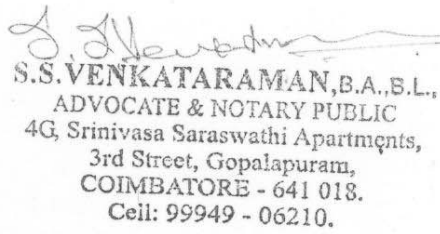 S.S. VENKATARAMAN, B.A.,B.L.,
ADVOCATE & NOTARY PUBLIC
4G, Srinivasa Saraswathi Apartments,
3rd Street, Gopalapuram,
COIMBATORE - 641 018.
Cell: 99949 - 06210.